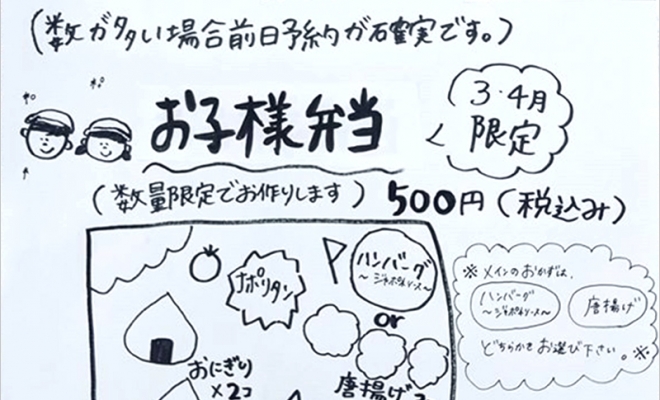 (数ガタタい場合前日予約が確実です。)
お子様弁当
3・4月
限定
(数量限定でお作りします) 500円(税込み)
ハンバーグ
～ジャポネソース～
ナポリタン
or
おにぎり
×2コ
唐揚げ
※メインのおかずは、
ハンバーグ
～ジャポネソース～
唐揚げ
どちらかをお選び下さい。※